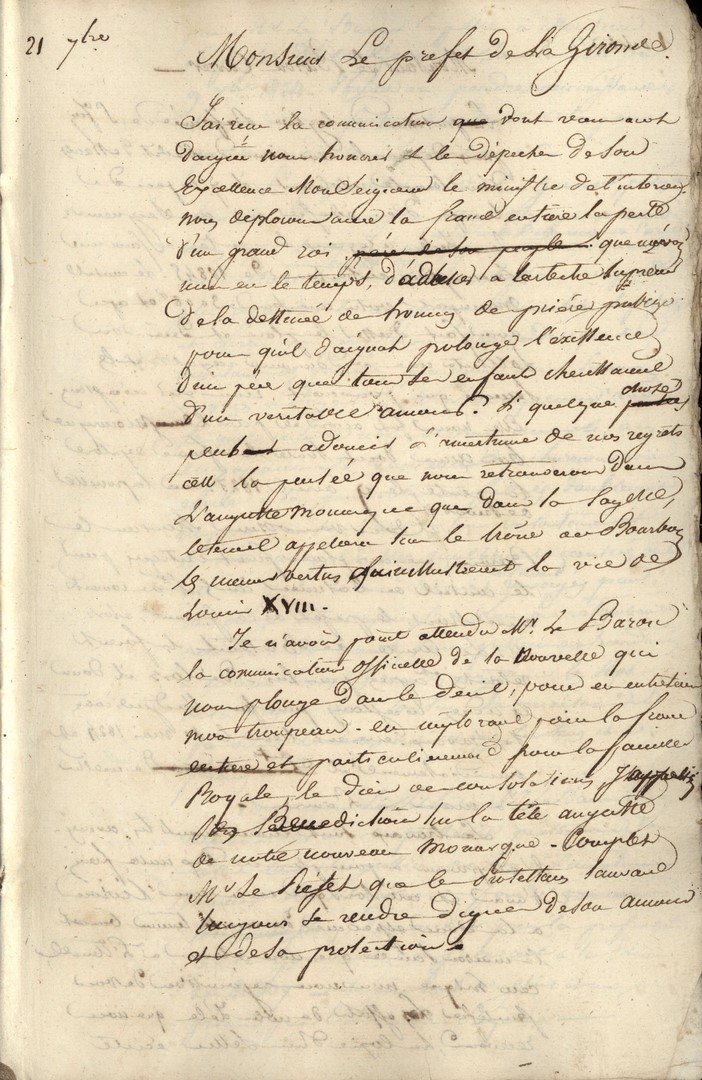 21 7bre
Monsieur Le prefet de La Gironde.
J'ai reçu la comunication que dont vous avez
daigné nous honorer & le dépeche de Son
Excellence Monseigneur le ministre de l'interieur
nous déplorons avec la france entière la perte
d'un grand roi père de son peuple que n'avons
nous eu le temps, d'adresser a l'arbitre Supreme
de la destinée des hommes des prière publique
pour qu'il daignat prolonger l'existence
d'un père que tous ses enfant cherissaient
d'un veritable amour. Si quelque chose
peut adoucir l'amertume de nos regrets
cest la pensée que nous retrouverons dans
L'auguste monarque que dans sa Sagesse,
leternel appelle sur le trône des Bourbons
les memes vertus qui illustrerent la vie de
Louis XVIII.
Je n'avois point attendu Mr. Le Baron
la comunication officielle de la Nouvelle qui
nous plonge dans le deuil, pour en entretenir
mon troupeau. en implorant pour la france
entiere et particulierement pour la famille
Royale, le dieu de consolations, J'appelle
Ses Benediction sur la tête auguste
de notre nouveau monarque. Comptez
Mr Le Préfet que les Protestans sauront
toujours se rendre dignes de son amour
et de sa protection.